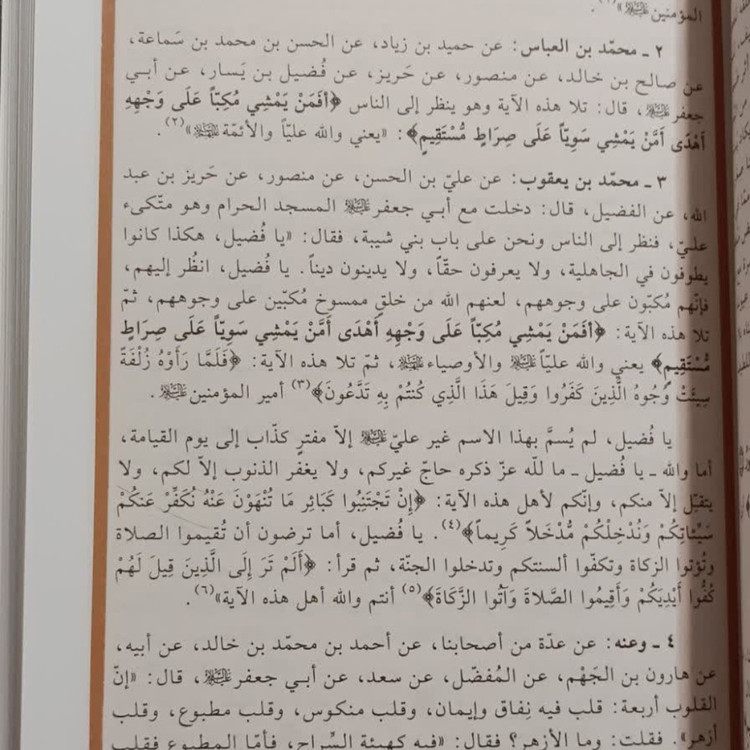 المؤمنين ﷺ»(١).
٢ ـ محمّد بن العباس: عن حميد بن زياد، عن الحسن بن محمد بن سَماعة،
عن صالح بن خالد، عن منصور، عن حَريز، عن فُضيل بن يَسار، عن أبي
جعفر ﷺ، قال: تلا هذه الآية وهو ينظر إلى الناس ﴿أَفَمَنْ يَمْشِي مُكِبّاً عَلَى وَجْهِهِ
أَهْدَى أَمَّنْ يَمْشِي سَوِيّاً عَلَى صِرَاطٍ مُّسْتَقِيمٍ﴾: «يعني والله عليّاً والأئمّة ﷺ»(٢).
٣ ـ محمّد بن يعقوب: عن عليّ بن الحسن، عن منصور، عن حَريز بن عبد
الله، عن الفضيل، قال: دخلت مع أبي جعفر ﷺ المسجد الحرام وهو متكىء
عليّ، فنظر إلى الناس ونحن على باب بني شيبة، فقال: «يا فُضيل، هكذا كانوا
يطوفون في الجاهلية، ولا يعرفون حقّاً، ولا يدينون ديناً. يا فُضيل، انظُر إليهم،
فإنّهم مُكبّون على وجوههم، لعنهم الله من خلقٍ ممسوخ مُكبّين على وجوههم، ثمّ
تلا هذه الآية: ﴿أَفَمَنْ يَمْشِي مُكِبّاً عَلَى وَجْهِهِ أَهْدَى أَمَّنْ يَمْشِي سَوِيّاً عَلَى صِرَاطٍ
مُّسْتَقِيمٍ﴾ يعني والله عليّاً ﷺ والأوصياء ﷺ، ثمّ تلا هذه الآية: ﴿فَلَمَّا رَأَوْهُ زُلْفَةً
سِيئَتْ وُجُوهُ الَّذِينَ كَفَرُوا وَقِيلَ هَذَا الَّذِي كُنتُمْ بِهِ تَدَّعُونَ﴾(٣) أمير المؤمنين ﷺ.
يا فُضيل، لم يُسمَّ بهذا الاسم غير عليّ ﷺ إلاّ مفترٍ كذّاب إلى يوم القيامة،
أما والله ـ يا فُضيل ـ ما لله عزّ ذكره حاجّ غيركم، ولا يغفر الذنوب إلاّ لكم، ولا
يتقبّل إلاّ منكم، وإنّكم لأهل هذه الآية: ﴿إِنْ تَجْتَنِبُوا كَبَائِرَ مَا تُنْهَوْنَ عَنْهُ نُكَفِّرْ عَنكُمْ
سَيِّئَاتِكُمْ وَنُدْخِلْكُمْ مُّدْخَلاً كَرِيماً﴾(٤). يا فُضيل، أما ترضون أن تُقيموا الصلاة
وتُؤتوا الزكاة وتكفّوا ألسنتكم وتدخلوا الجنّة، ثم قرأ: ﴿أَلَمْ تَرَ إِلَى الَّذِينَ قِيلَ لَهُمْ
كُفُّوا أَيْدِيَكُمْ وَأَقِيمُوا الصَّلاَةَ وَآتُوا الزَّكَاةَ﴾(٥) أنتم والله أهل هذه الآية»(٦).
٤ ـ وعنه: عن عدّة من أصحابنا، عن أحمد بن محمّد بن خالد، عن أبيه،
عن هارون بن الجَهْم، عن المُفضّل، عن سعد، عن أبي جعفر ﷺ، قال: «إنّ
القلوب أربعة: قلب فيه نِفاق وإيمان، وقلب منكوس، وقلب مطبوع، وقلب
أزهر». فقلت: وما الأزهر؟ فقال: «فيه كهيئة السِّراج، فأمّا المطبوع فقلب